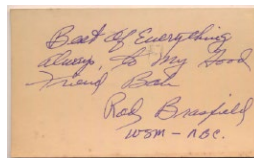 Best of Everything
always, to My Good
Friend Bob
Rod Brasfield
WSM - NBC.